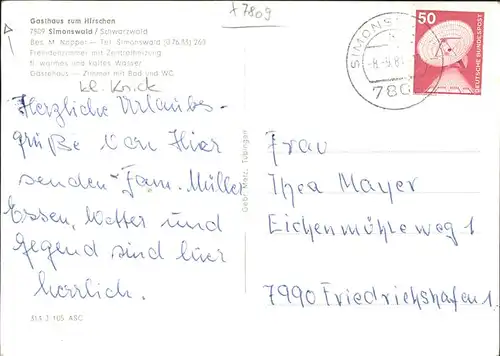 Gasthaus zum Hirschen
7809 Simonswald / Schwarzwald
Bes. M. Nopper — Tel. Simonswald (0 76 83) 263
Fremdenzimmer mit Zentralheizung
fl. warmes und kaltes Wasser
Gästehaus — Zimmer mit Bad und WC
+7809
kl. Knick
Herzliche Urlaubs-
grüße von Hier
senden Fam. Müller
Essen, Wetter und
gegend sind hier
herrlich.
314 3 105 ABC
Gebr. Metz, Tübingen
SIMONS
780
50
DEUTSCHE BUNDESPOST
Frau
Thea Mayer
Eichenmühleweg 1
7990 Friedrichshafen 1